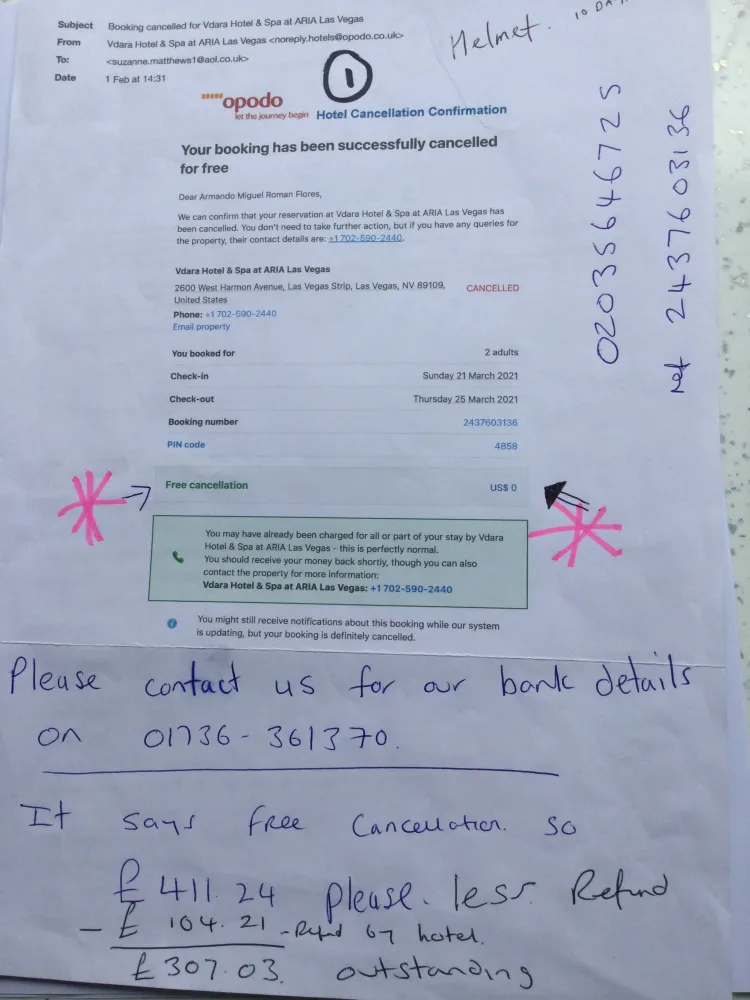 Subject Booking cancelled for Vdara Hotel & Spa at ARIA Las Vegas
From Vdara Hotel & Spa at ARIA Las Vegas <noreply.hotels@opodo.co.uk>
To: <suzanne.matthews1@aol.co.uk>
Date 1 Feb at 14:31
Helmet. 10 DAY
1
opodo
let the journey begin
Hotel Cancellation Confirmation
Your booking has been successfully cancelled
for free
Dear Armando Miguel Roman Flores,
We can confirm that your reservation at Vdara Hotel & Spa at ARIA Las Vegas has
been cancelled. You don't need to take further action, but if you have any queries for
the property, their contact details are: +1 702-590-2440.
Vdara Hotel & Spa at ARIA Las Vegas
2600 West Harmon Avenue, Las Vegas Strip, Las Vegas, NV 89109, CANCELLED
United States
Phone: +1 702-590-2440
Email property
You booked for 2 adults
Check-in Sunday 21 March 2021
Check-out Thursday 25 March 2021
Booking number 2437603136
PIN code 4858
Free cancellation US$ 0
You may have already been charged for all or part of your stay by Vdara
Hotel & Spa at ARIA Las Vegas - this is perfectly normal.
You should receive your money back shortly, though you can also
contact the property for more information:
Vdara Hotel & Spa at ARIA Las Vegas: +1 702-590-2440
You might still receive notifications about this booking while our system
is updating, but your booking is definitely cancelled.
02035646725
ref 2437603136
Please contact us for our bank details
on 01736-361370.
It says free cancellation. so
£411.24 please. less. Refund
- £104.21 - Refund by hotel.
£307.03. outstanding